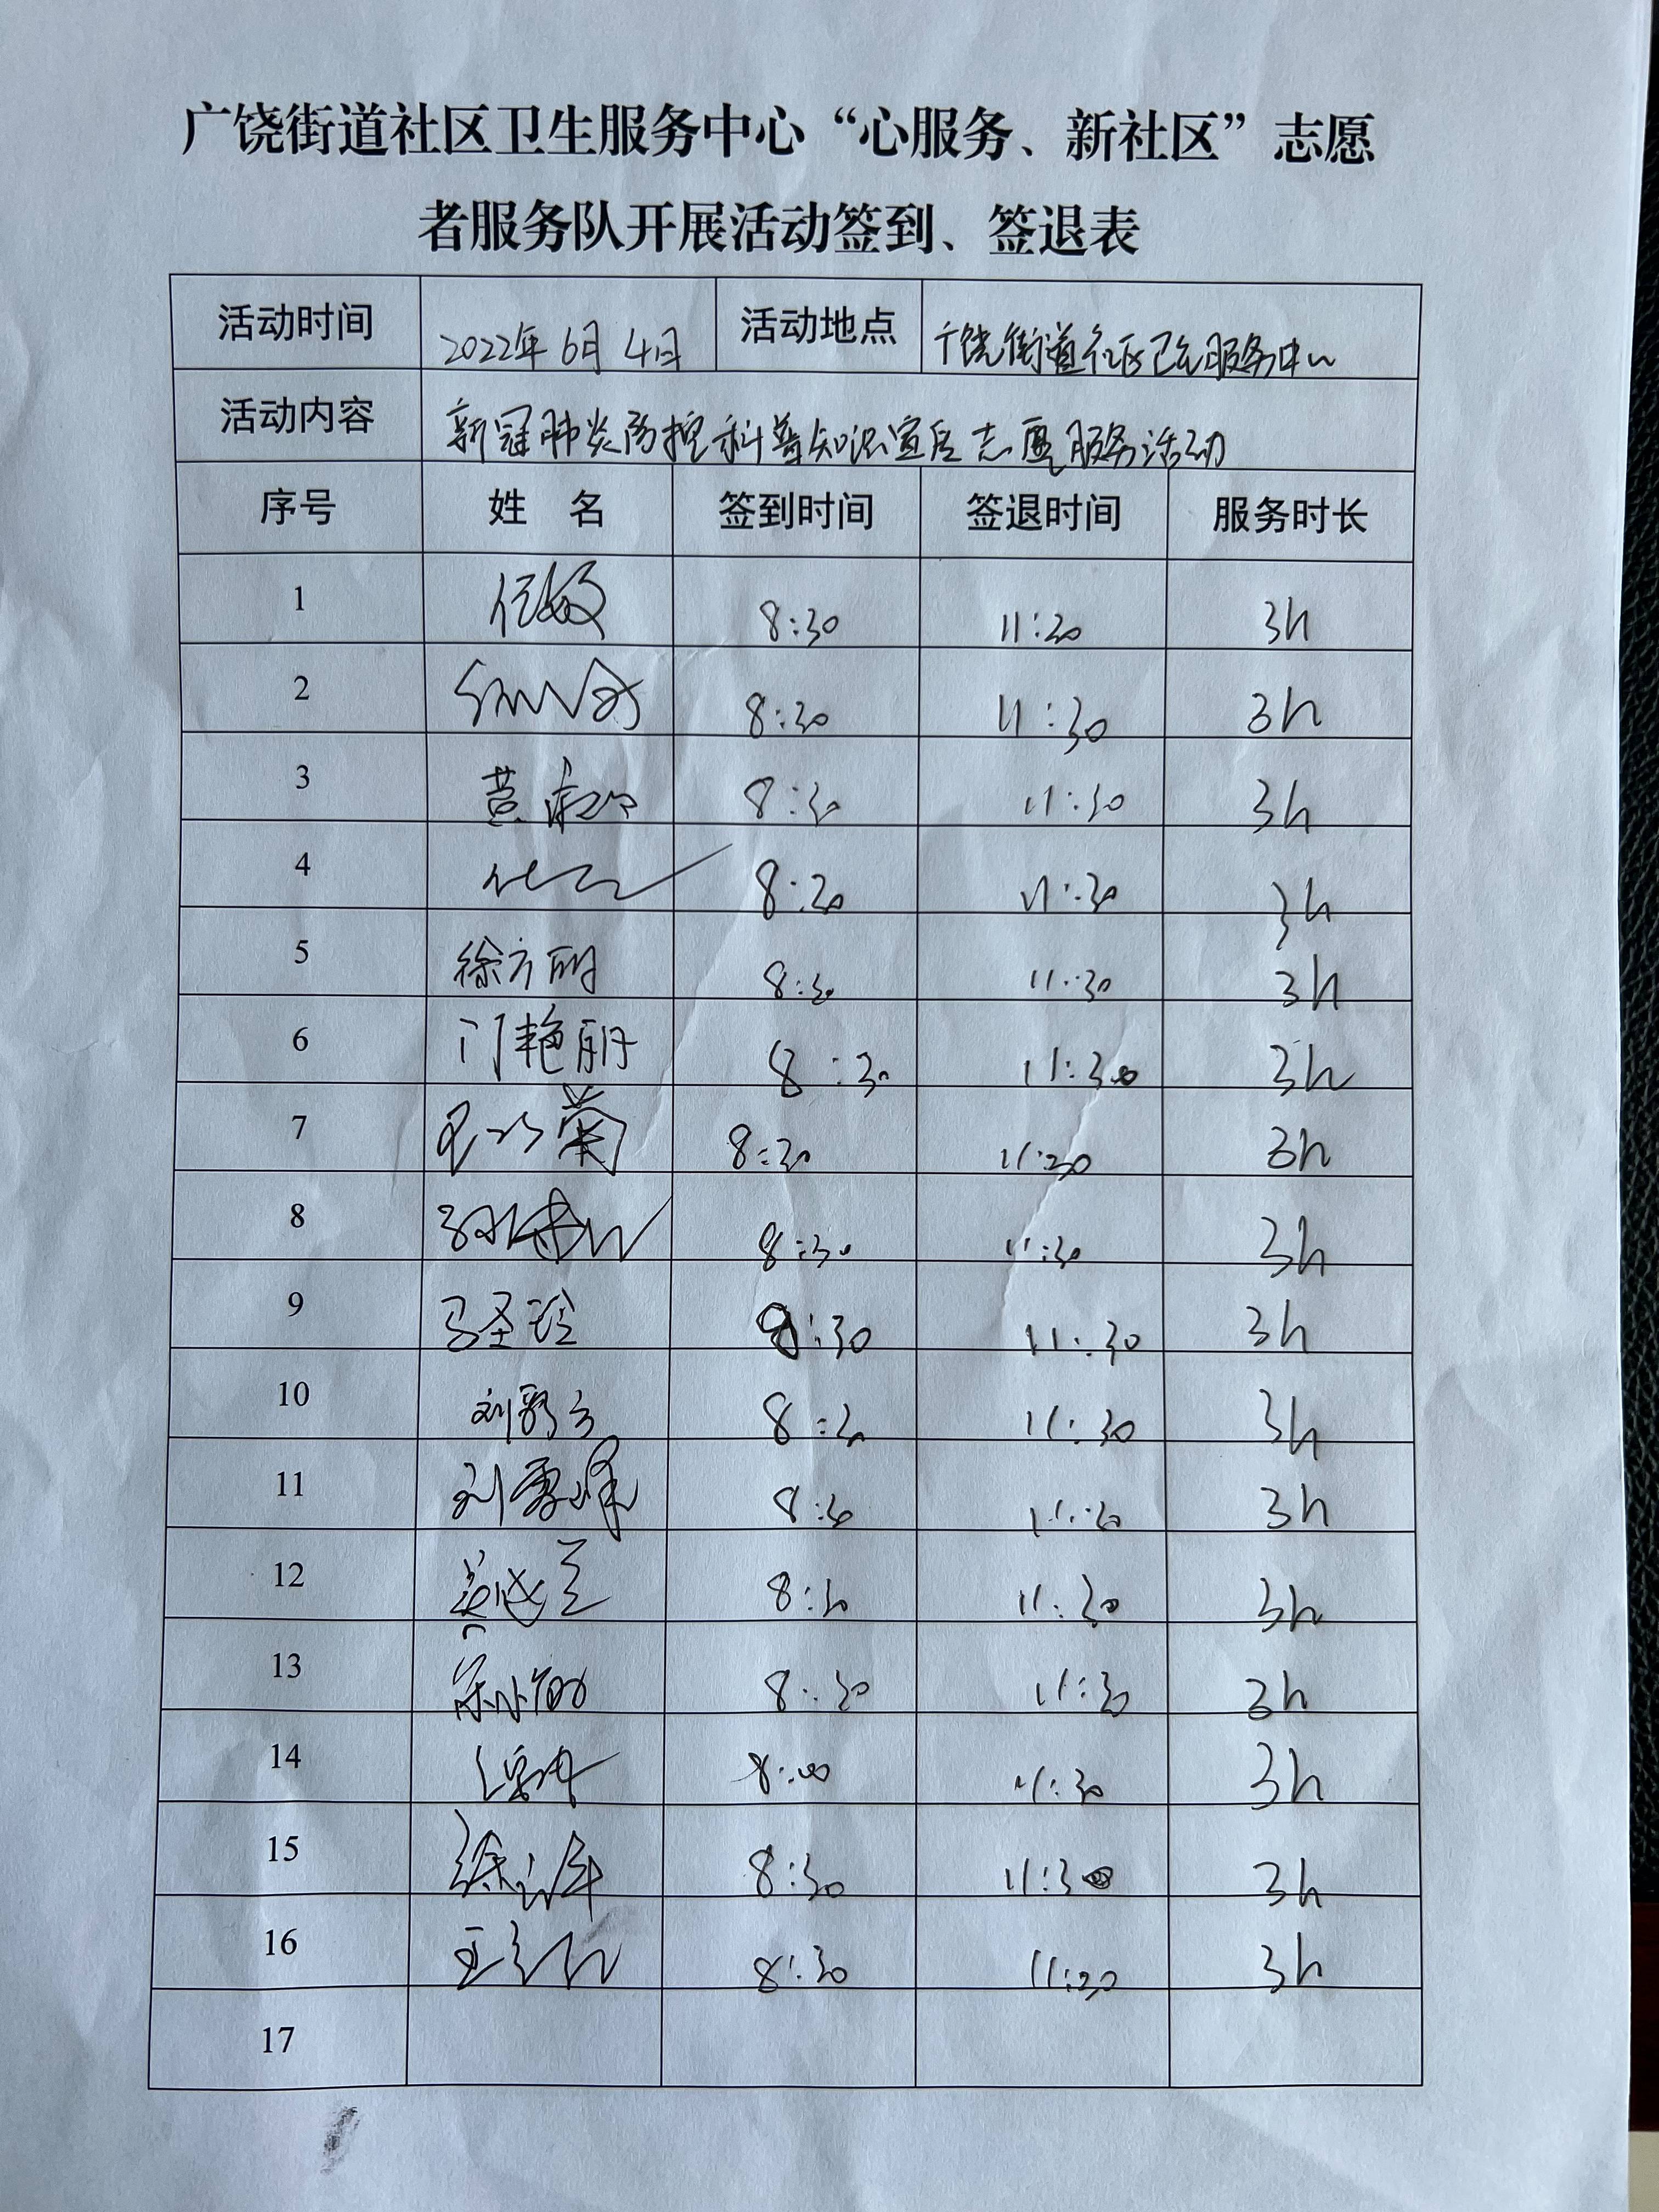 广饶街道社区卫生服务中心“心服务、新社区”志愿
者服务队开展活动签到、签退表
活动时间 2022年6月4日 活动地点 广饶街道社区卫生服务中心
活动内容 新冠肺炎防控科普知识宣传志愿服务活动
序号 姓 名 签到时间 签退时间 服务时长
1 任敏 8:30 11:30 3h
2 8:30 11:30 3h
3 黄 8:30 11:30 3h
4 8:30 11:30 3h
5 徐方丽 8:30 11:30 3h
6 门艳丽 8:30 11:30 3h
7 菊 8:30 11:30 3h
8 8:30 11:30 3h
9 马圣玲 8:30 11:30 3h
10 刘 8:30 11:30 3h
11 刘雪峰 8:30 11:30 3h
12 8:30 11:30 3h
13 8:30 11:30 3h
14 8:00 11:30 3h
15 徐 8:30 11:30 3h
16 王 8:30 11:30 3h
17